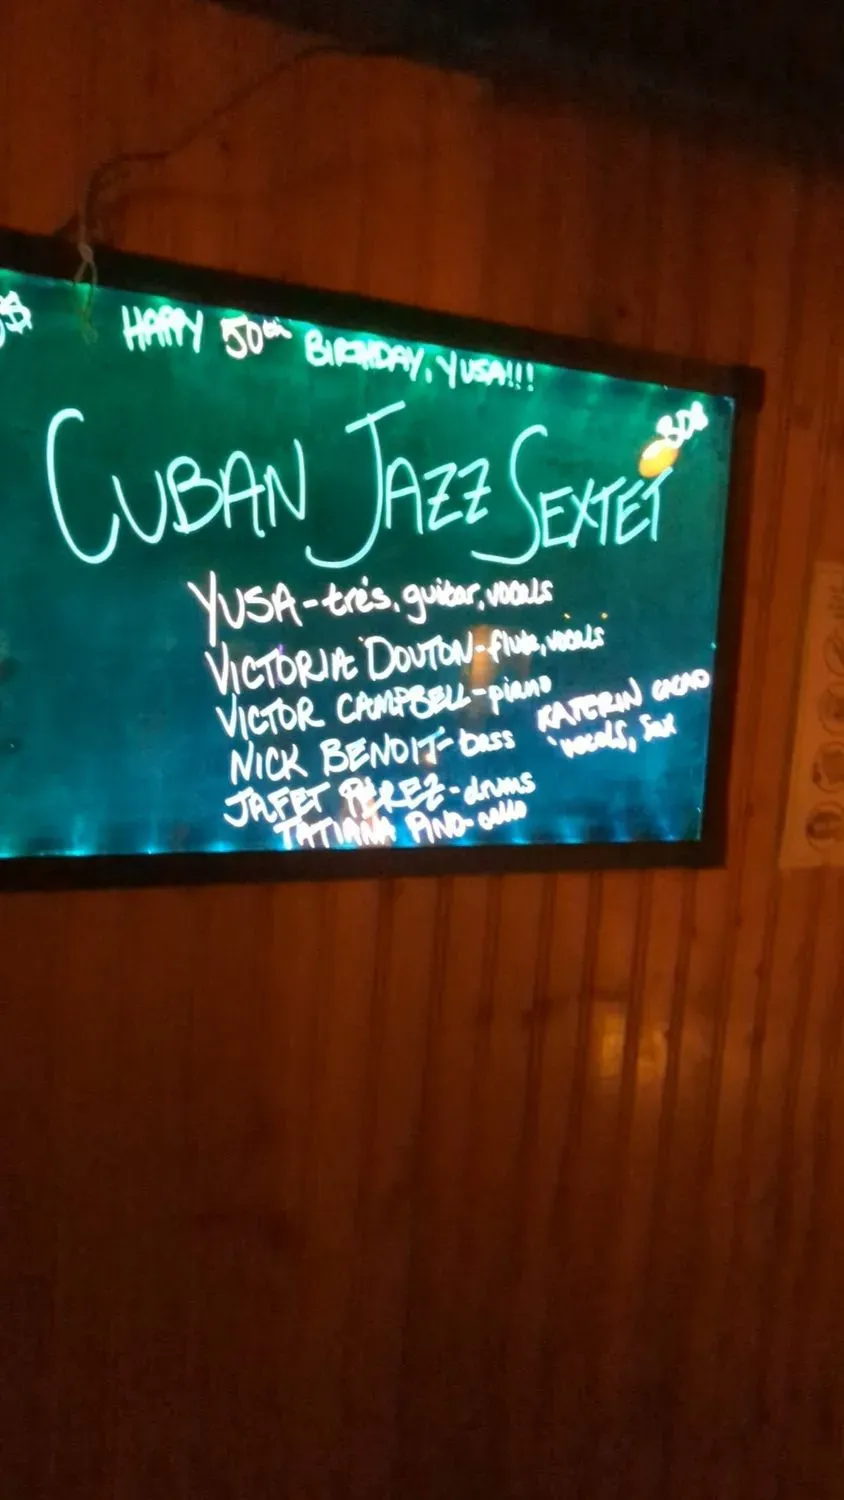 HAPPY 50th BIRTHDAY, YUSA!!!
CUBAN JAZZ SEXTET
YUSA-trés, guitar, vocals
VICTORIA DOUTON-flute, vocals
VICTOR CAMPBELL-piano
NICK BENOIT-bass
KATERIN CACAO
vocals, sax
JAFET PÉREZ-drums
TATIANA PINO-cello